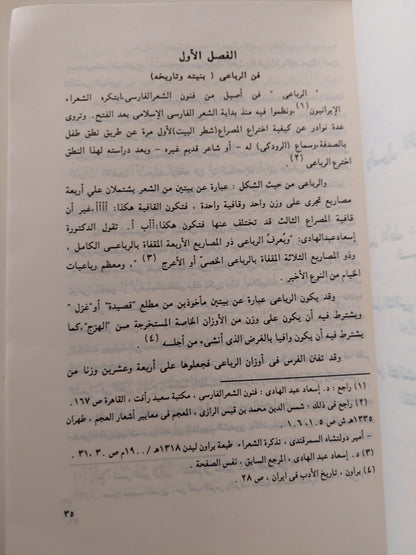 الفصل الأول
فن الرباعى ( بنيته وتاريخه)
" الرباعى " فن أصيل من فنون الشعرالفارسى،ابتكره الشعراء
الإيرانيون(١)،ونظموا فيه منذ بداية الشعر الفارسى الإسلامى بعد الفتح. وتروى
عدة نوادر عن كيفية اختراع المصراع(شطر البيت)الأول مرة عن طريق نطق طفل
بالصدفة،وسماع (الرودكى) له – أو شاعر قديم غيره – وبعد دراسته لهذا النطق
اخترع الرباعى (٢).
والرباعى من حيث الشكل : عبارة عن بيتين من الشعر يشتملان علي أربعة
مصاريع تجرى على وزن واحد وقافية واحدة ، فتكون القافية هكذا: أأأأ،غير أن
قافية المصراع الثالث قد تختلف عنها فتكون هكذا:أأب أ. تقول الدكتورة
إسعادعبدالهادى: "ويُعرفُ الرباعي ذو المصاريع الأربعة المقفاة بالرباعـى الكامل ،
وذو المصاريع الثلاثة المقفاة بالرباعي الخصىّ أو الأعرج (٣) "، ومعظم رباعيات
الخيام من النوع الأخير .
وقد يكون الرباعى عبارة عن بيتين مأخوذين من مطلع "قصيدة" أو"غزل "
ويشترط فيه أن يكون على وزن من الأوزان الخاصة المستخرجة مـن "الهزج"،كما
يشترط فيه أن يكون وافيا بالغرض الذى أنشىء من أجلـه (٤)
وقد تفنن الفرس فى أوزان الرباعى فجعلوها على أربعة وعشرين وزنا من
(١) راجع : د. إسعاد عبد الهادى : فنون الشعرالفارسى ، مكتبة سعيد رأفت ، القاهرة ص ١٦٧.
(٢) راجع فى ذلك : شمس الدين محمد بن قيس الرازى ، المعجم فى معايير أشعار العجم ، طهران
١٣٣٥هـ ش ص ١٠٥ ، ١٠٦ .
– أمير دولتشاه السمرقندى ، تذكرة الشعراء طبعة براون ليدن ١٣١٨هـ/ ١٩٠٠م ص ٣٠، ٣١ .
(٣) د. إسعاد عبد الهادى ، المرجع السابق ، نفس الصفحة .
(٤) براون ، تاريخ الأدب فى ايران ، ص ٢٨ .
٣٥